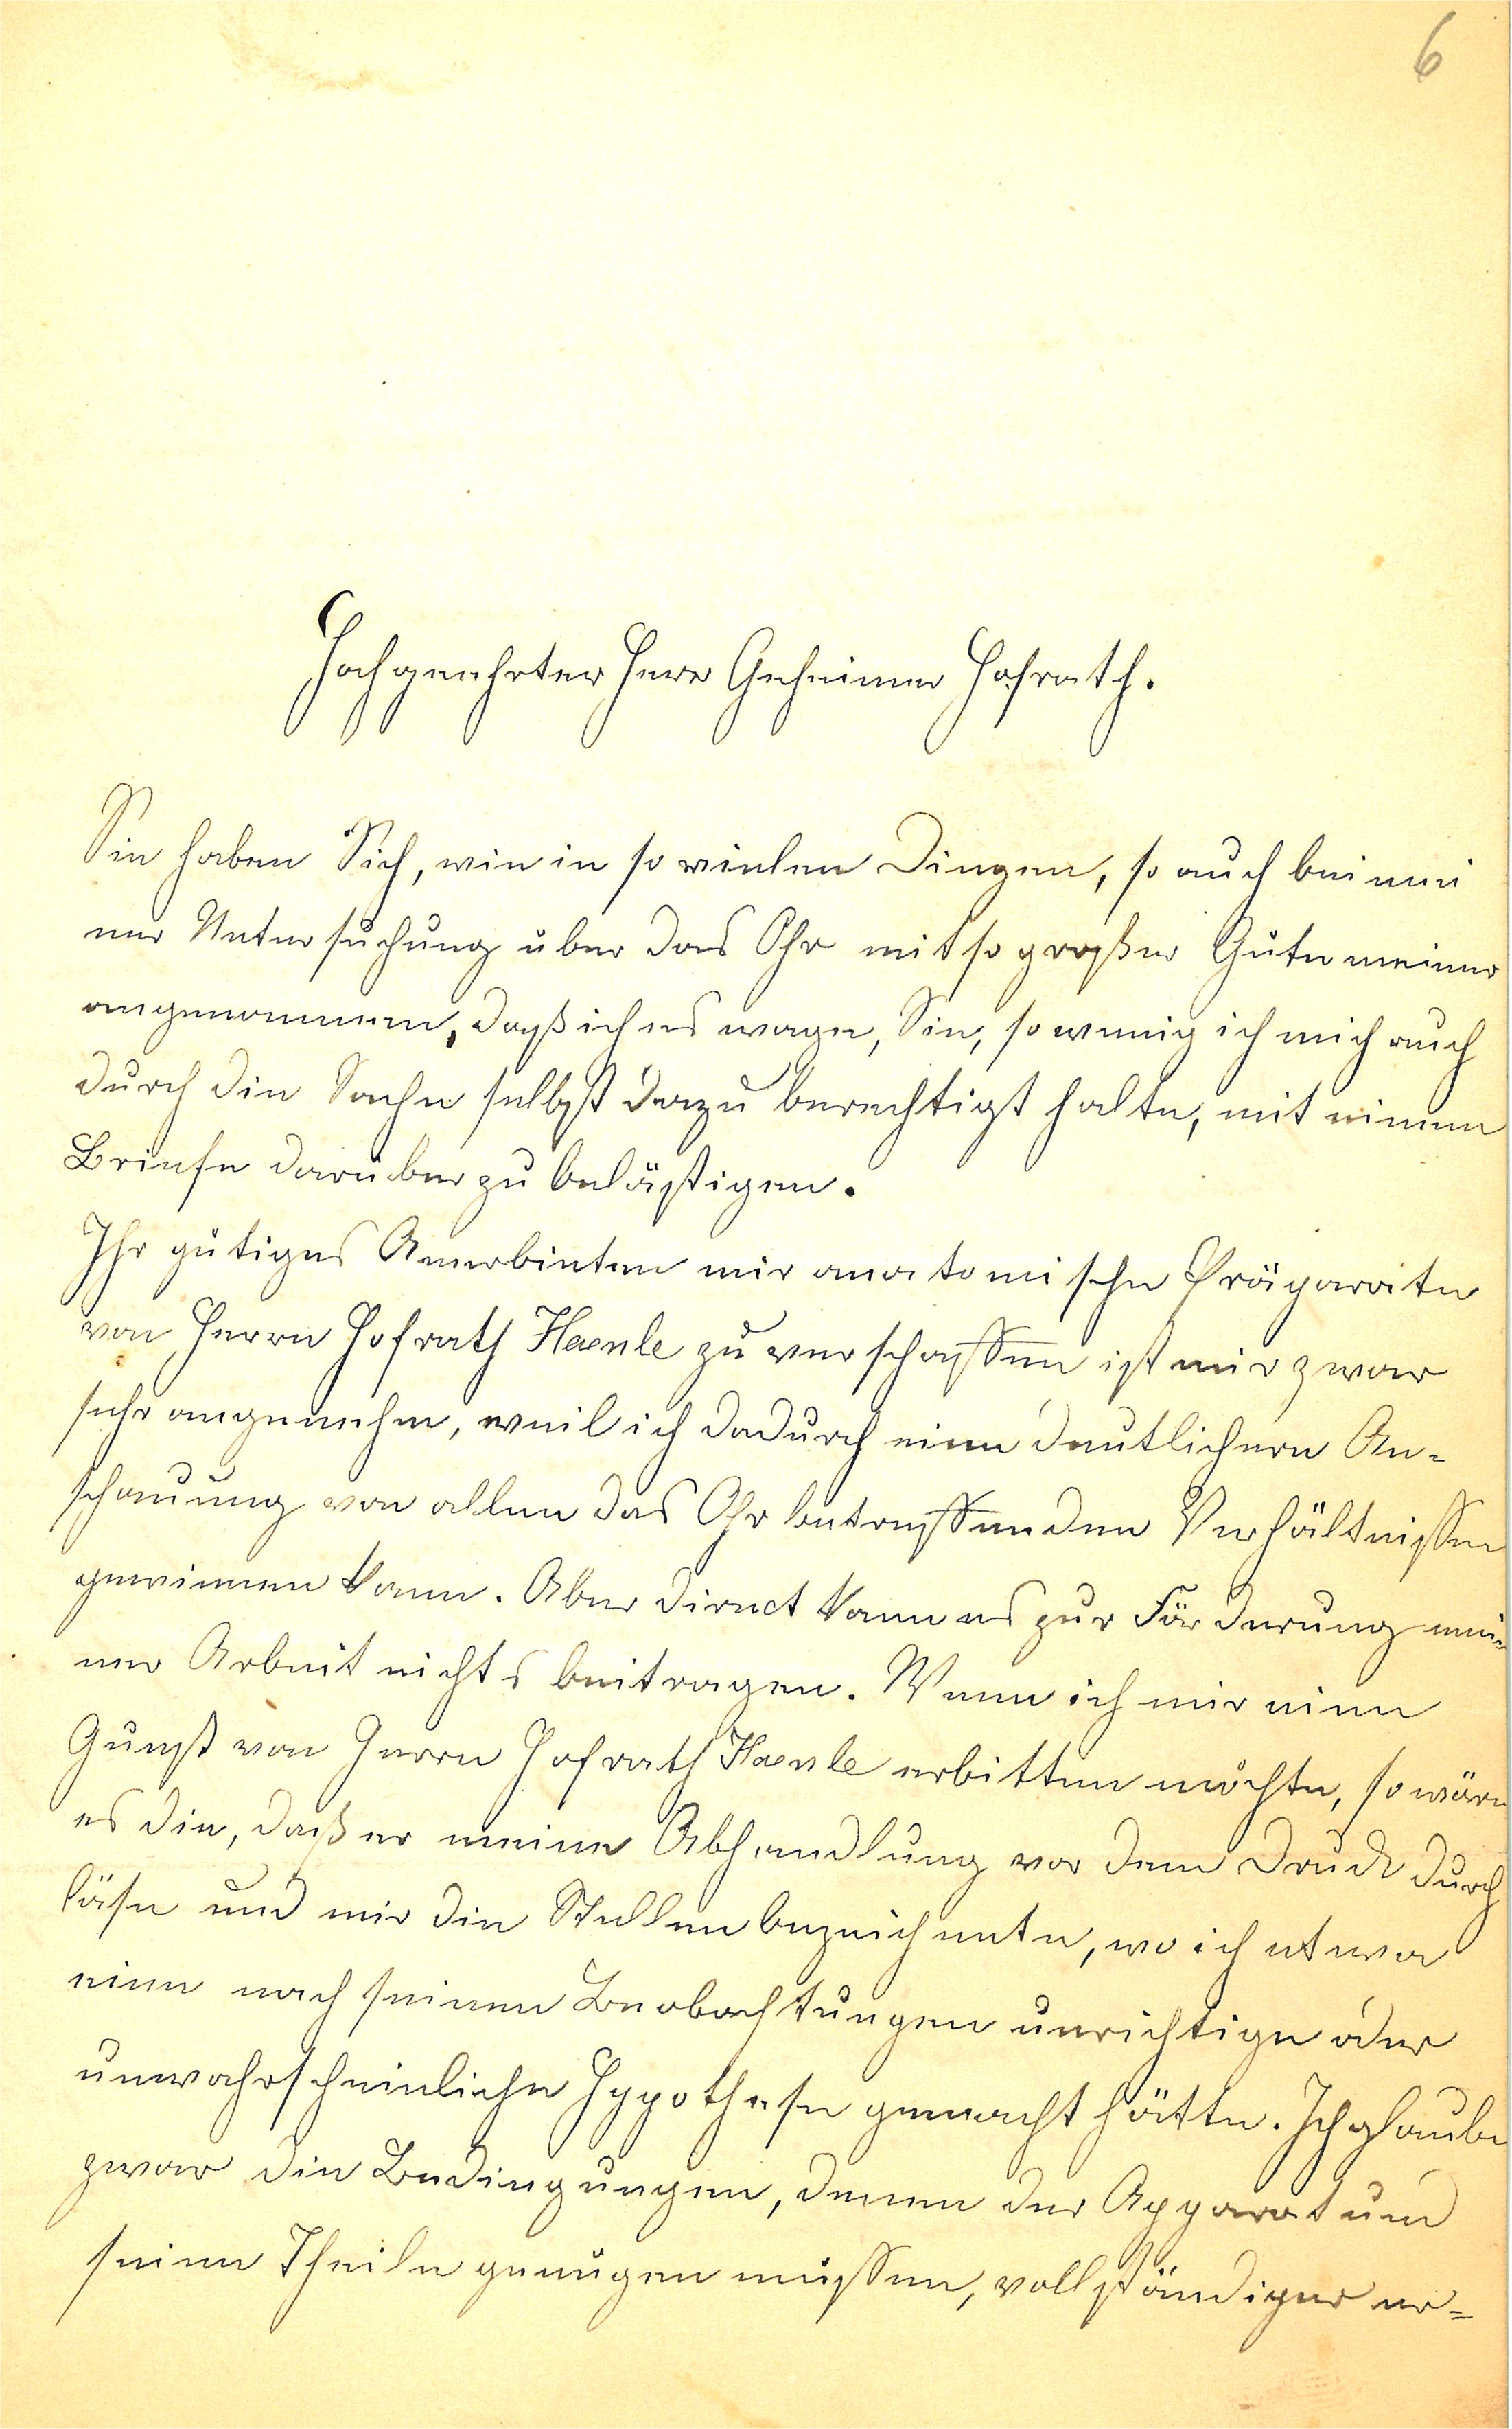 6
Hochgeehrter Herr Geheimer Hofrath.
Sie haben Sich, wie in so vielen Dingen, so auch bei mei
ner Untersuchung über das Ohr mit so großer Güte meiner
angenommen, daß ich es wage, Sie, so wenig ich mich auch
durch die Sache selbst dazu berechtigt halte, mit einem
Briefe darüber zu belästigen.
Ihr gütiges Anerbieten mir anatomische Präparate
von Herrn Hofrath Haenle zu verschaffen ist mir zwar
sehr angenehm, weil ich dadurch eine deutlichere An-
schauung von allen das Ohr betreffenden Verhältnissen
gewinnen kann. Aber direct kann es zur Förderung mei-
ner Arbeit nichts beitragen. Wenn ich mir eine
Gunst von Herrn Hofrath Haenle erbitten möchte, so wäre
es die, daß er meine Abhandlung vor dem Druck durch
läse und mir die Stellen bezeichnete, wo ich etwa
eine nach seinen Beobachtungen unrichtige oder
unwahrscheinliche Hypothese gemacht hätte. Ich glaube
zwar die Bedingungen, denen der Apparat und
seine Theile genügen müssen, vollständiger er-